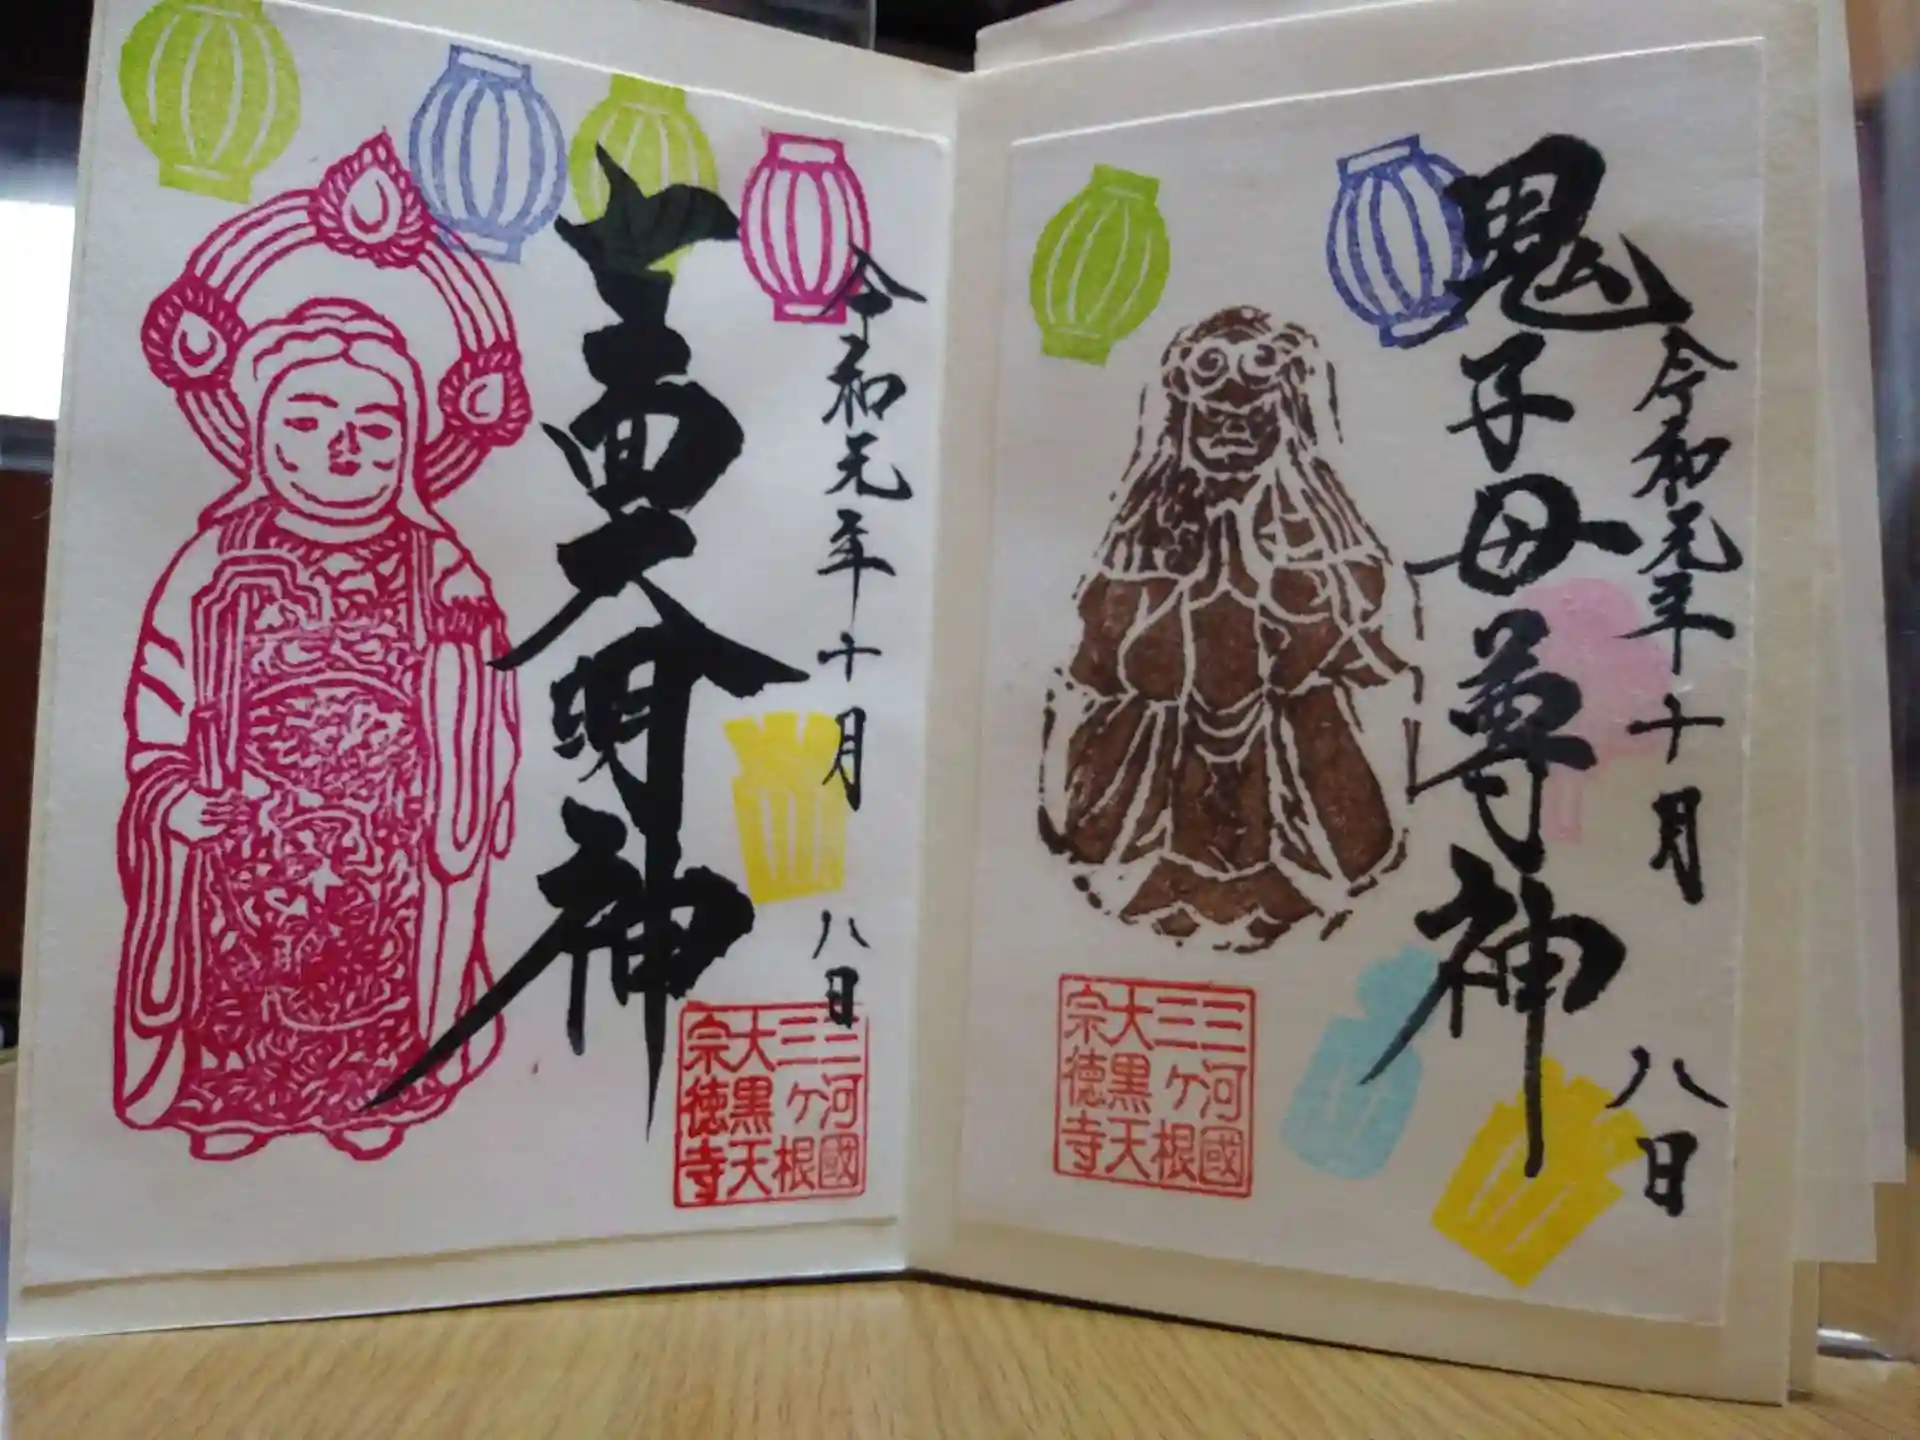 令和元年十月八日
鬼子母尊神
三河國
三ヶ根
大黒天
宗徳寺
令和元年十月八日
七面大明神
三河國
三ヶ根
大黒天
宗徳寺